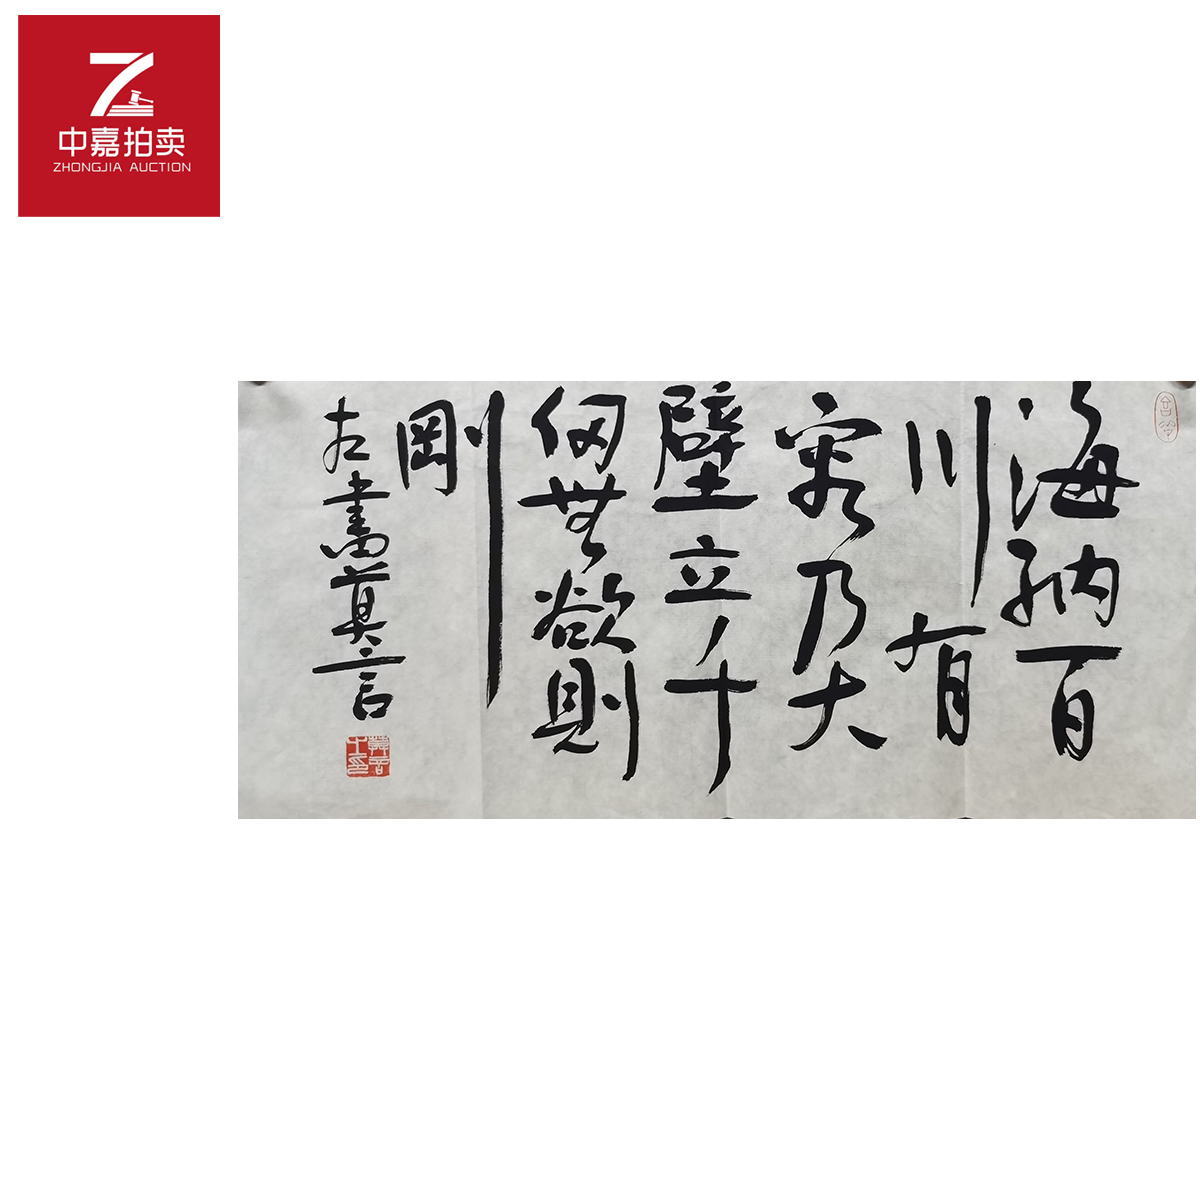 中嘉拍卖
ZHONGJIA AUCTION
海納百
川有
容乃大
壁立千
仞無欲則
剛
左書莫言